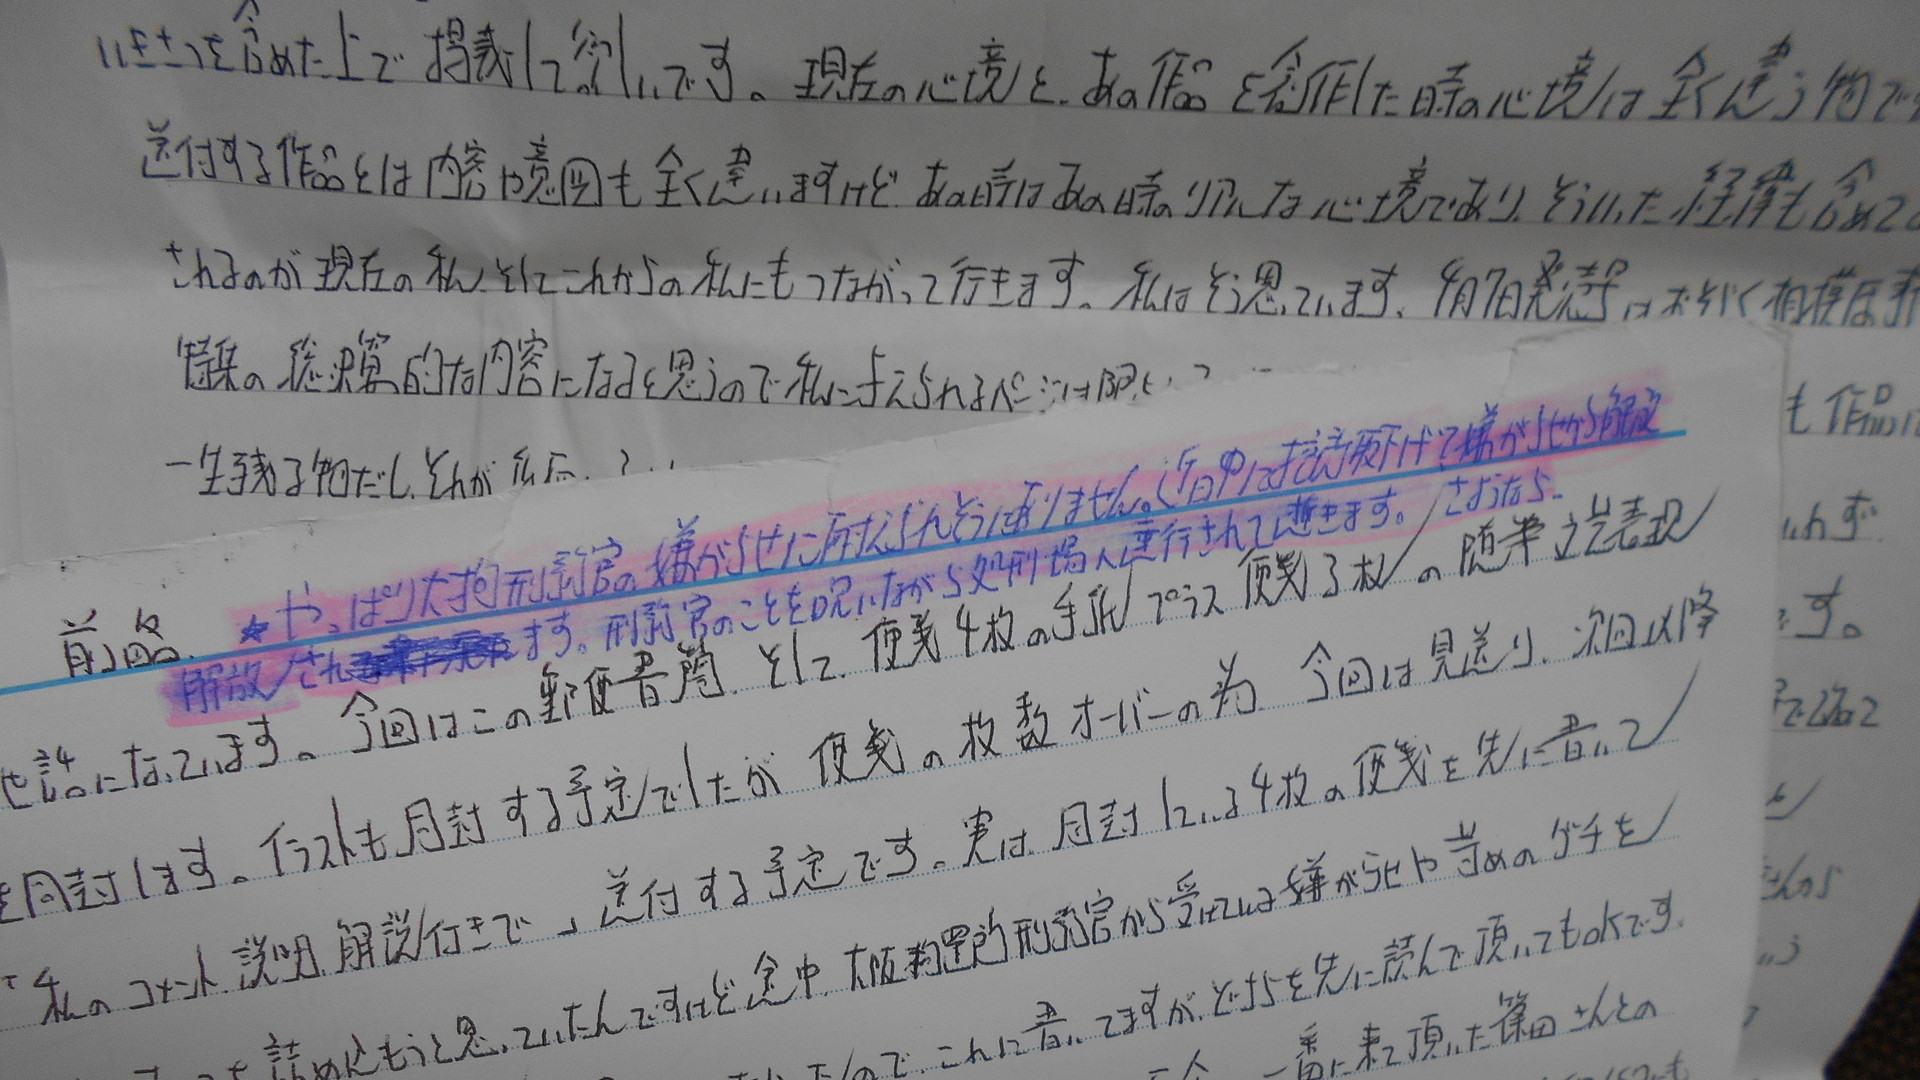 いきさつを含めた上で掲載して欲しいです。現在の心境と、あの作品を創作した時の心境は全く違う物で
送付する作品とは内容や意図も全く違いますけど、あの時はあの時のリアルな心境であり、そういった経緯も含めて
されるのが現在の私、そしてこれからの私にもつながって行きます。私はそう思っています。4月7日発売号はおそらく相模原事
特集の総決算的な内容になると思うので私に与えられるページは限
一生残る物だし、それが
も作品
れず
す。
★やっぱり大拘刑務官の嫌がらせに耐えられそうに有りません。近日中に控訴取下げて嫌がらせから解放
解放されます。刑務官のことを呪いながら処刑場へ連行されて逝きます。さようなら。
前略
せ話になっています。今回はこの郵便書簡、そして、便箋4枚の手紙プラス便箋3枚の随筆文芸表現
を同封します。イラストも同封する予定でしたが便箋の枚数オーバーの為、今回は見送り、次回以降
私のコメント、説明、解説付きで、送付する予定です。実は、同封している4枚の便箋を先に書いて
詰め込もうと思っていたんですけど途中、大阪拘置所刑務官から受けている嫌がらせや苛めのグチを
ので、これに書いてますが、どちらを先に読んで頂いてもOKです。
一番に来て頂いた篠田さんとの